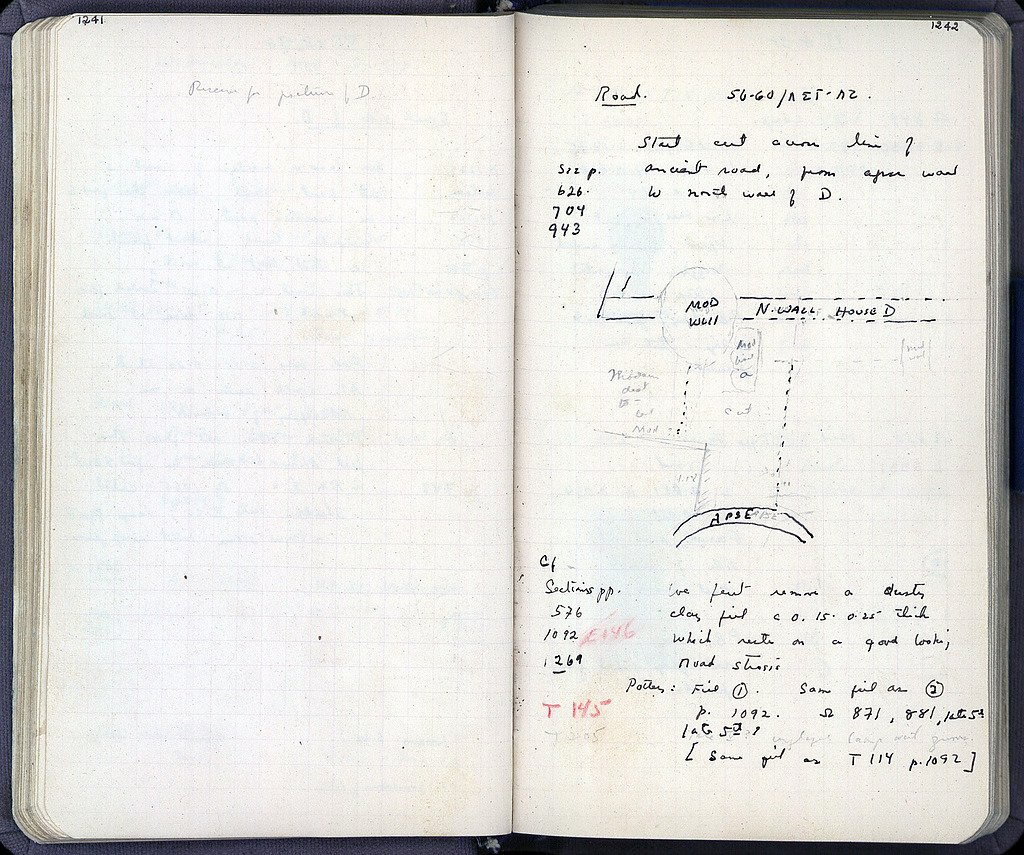 1241
Reserve for picture of D
1242
Road. 56-60/ΛΣΤ-ΛΖ.
Start cut across line of
See p. ancient road, from apse wall
626. to north wall of D.
704
943
MOD
WELL
N. WALL HOUSE D
Mod
a
Mod
cut
Mod
APSE
Cf
Sections pp. We first remove a dusty
576 clay fill c 0.15-0.25 thick
1092 E146 which rests on a good looking
1269 road strosis
Pottery: Fill ①. Same fill as ②
T 145 p. 1092. Ω 871, 881, late 5th
T 205 late 5th?
[Same fill as T 114 p. 1092]